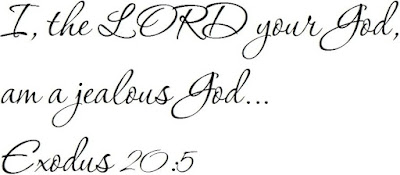 I, the LORD your God,
am a jealous God...
Exodus 20:5